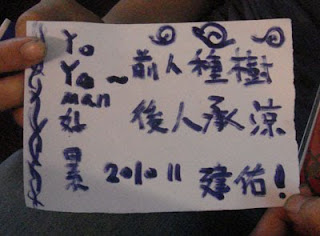 Yo
Yo~
man
好
累
前人種樹
後人承涼
2010 11 建佑!